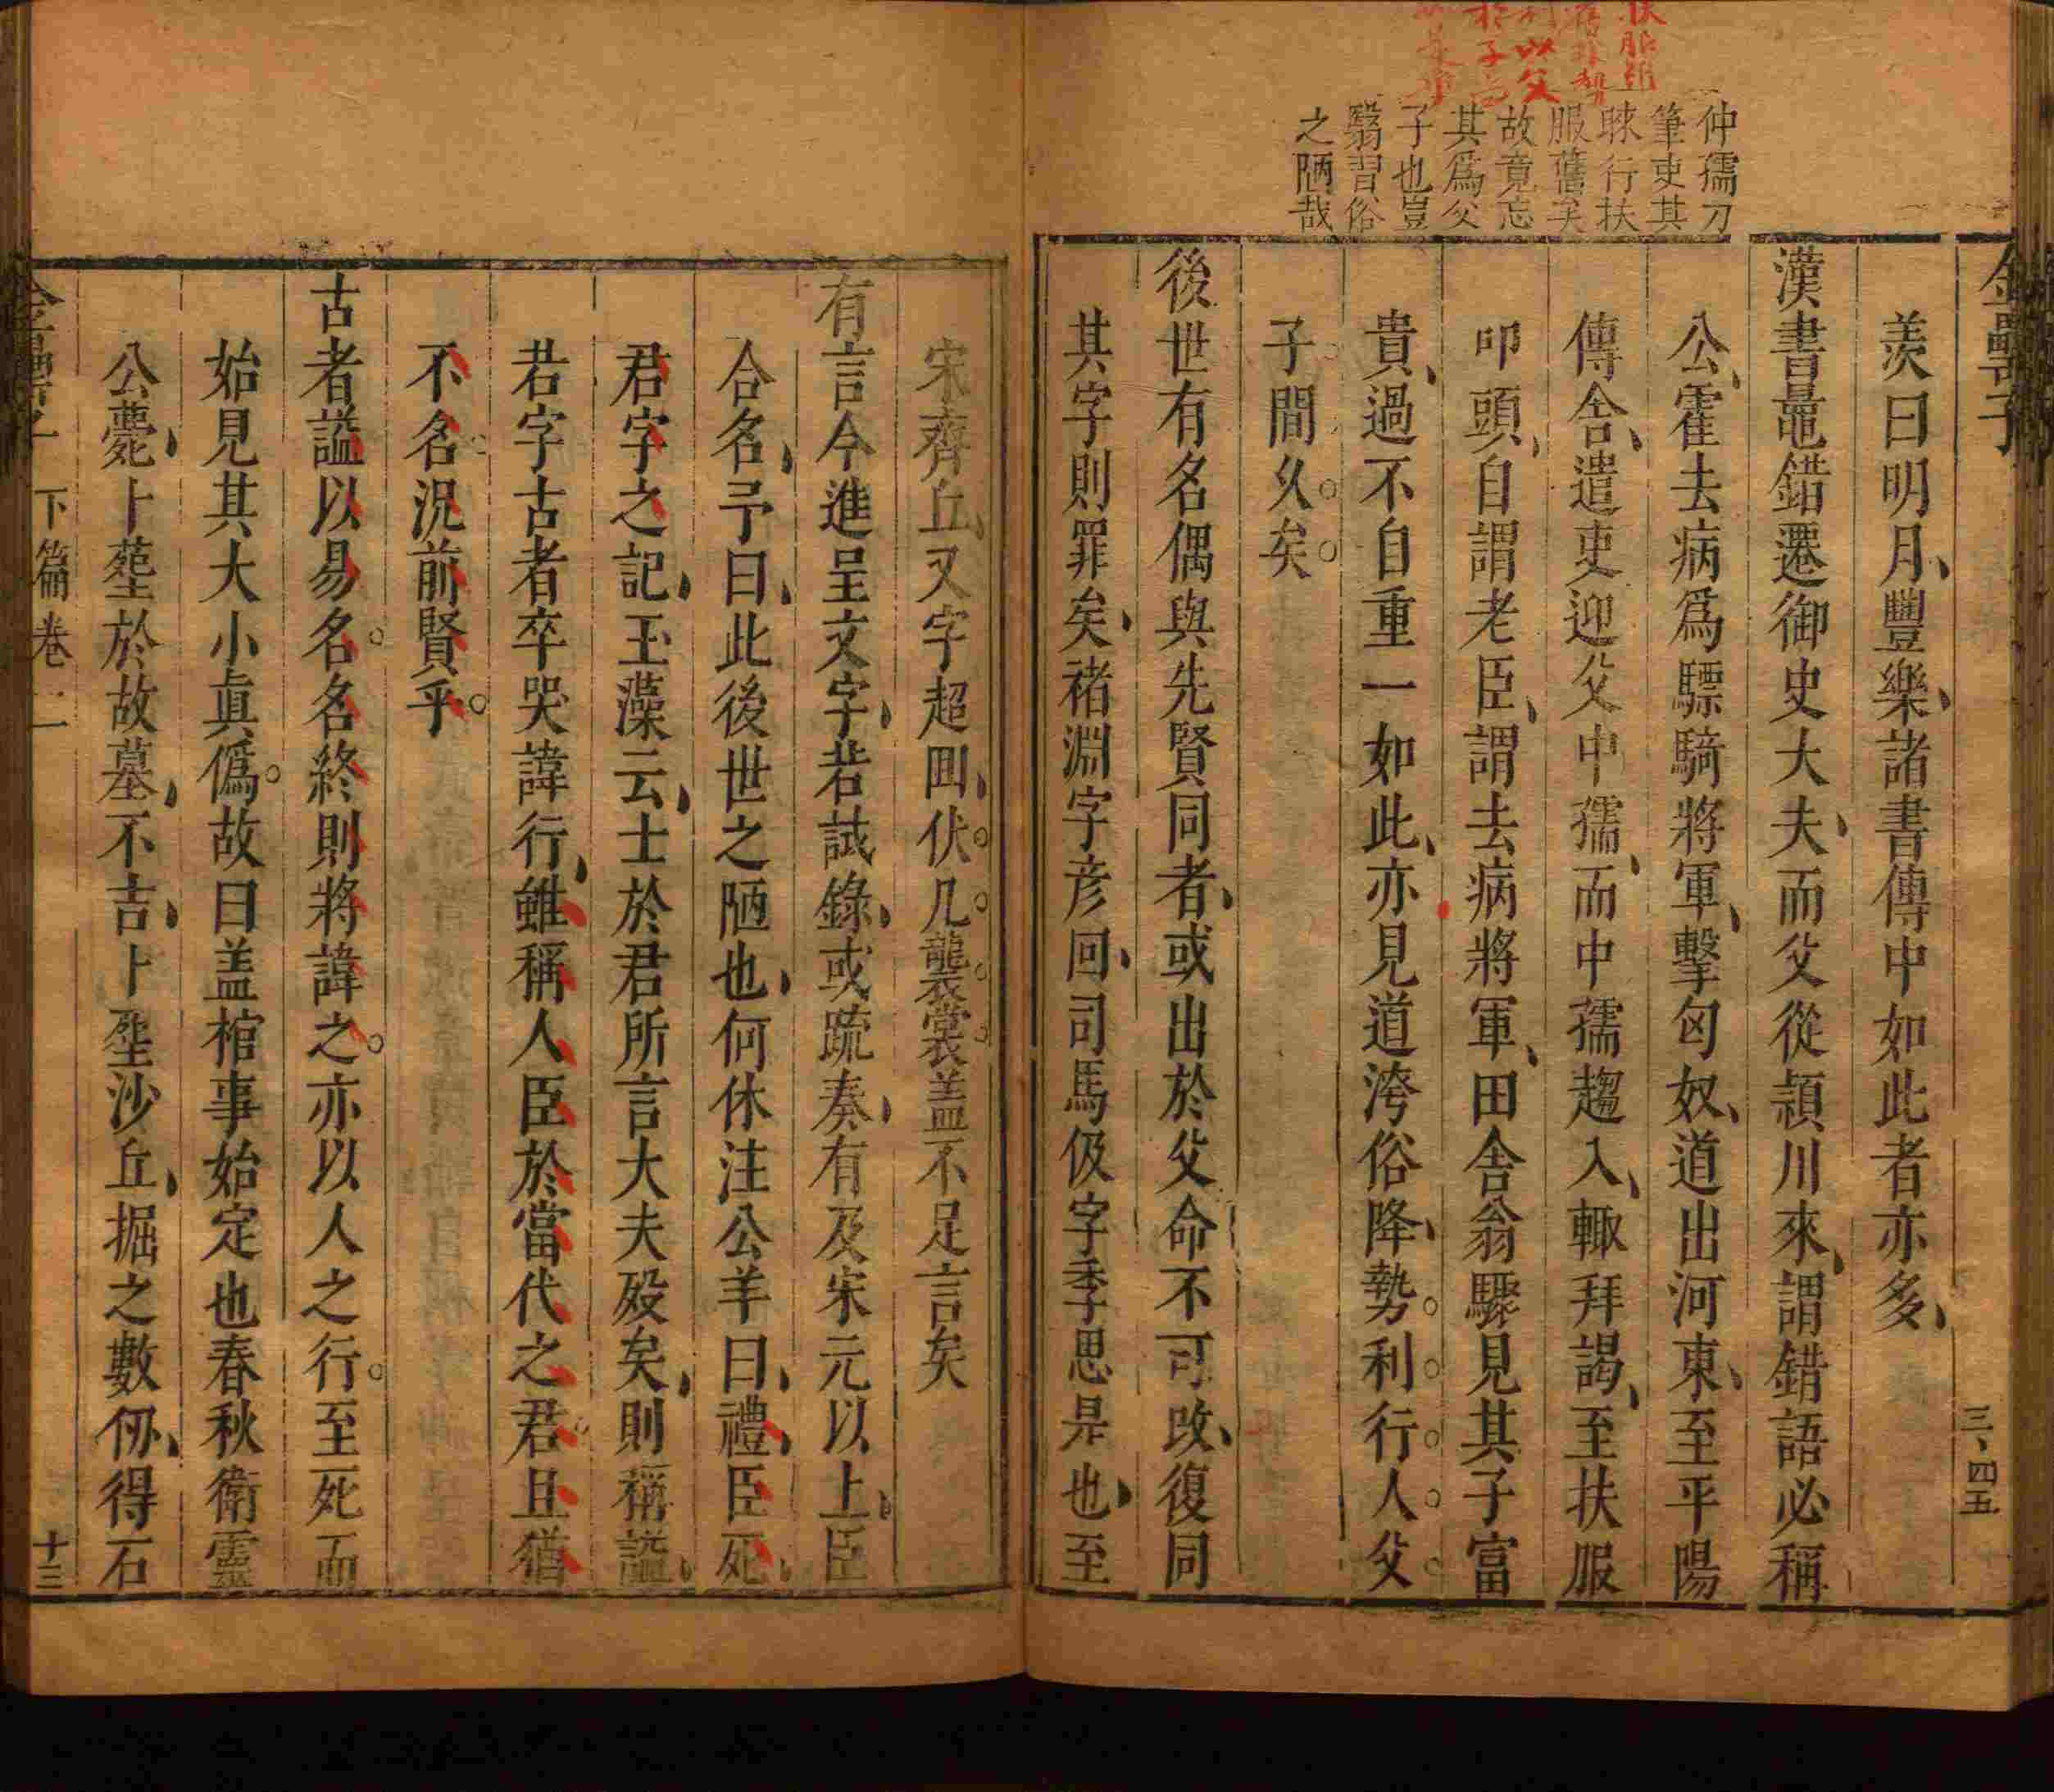 金罍子
三、四五
仲孺刀
筆吏其
睞行扶
服舊矣
故竟忘
其爲父
子也豈
翳習俗
之陋哉
羨曰明月豐樂諸書傳中如此者亦多
漢書鼂錯遷御史大夫而父從頴川來謂錯語必稱
公霍去病爲驃騎將軍擊匈奴道出河東至平陽
傳舍遣吏迎父中孺而中孺趨入輙拜謁至扶服
叩頭自謂老臣謂去病將軍田舍翁驟見其子富
貴過不自重一如此亦見道洿俗降勢利行人父
子間久矣
後世有名偶與先賢同者或出於父命不可改復同
其字則罪矣褚淵字彦回司馬伋字季思是也至
宋齊丘又字超回伏几襲裳盖不足言矣
有言今進呈文字若試錄或疏奏有及宋元以上臣
合名予曰此後世之陋也何休注公羊曰禮臣死
君字之記玉藻云士於君所言大夫殁矣則稱諡
若字古者卒哭諱行雖稱人臣於當代之君且猶
不名況前賢乎
古者諡以易名名終則將諱之亦以人之行至死而
始見其大小眞僞故曰盖棺事始定也春秋衛靈
公薨卜塟於故墓不吉卜塟沙丘掘之數仭得石
下篇卷一
十三